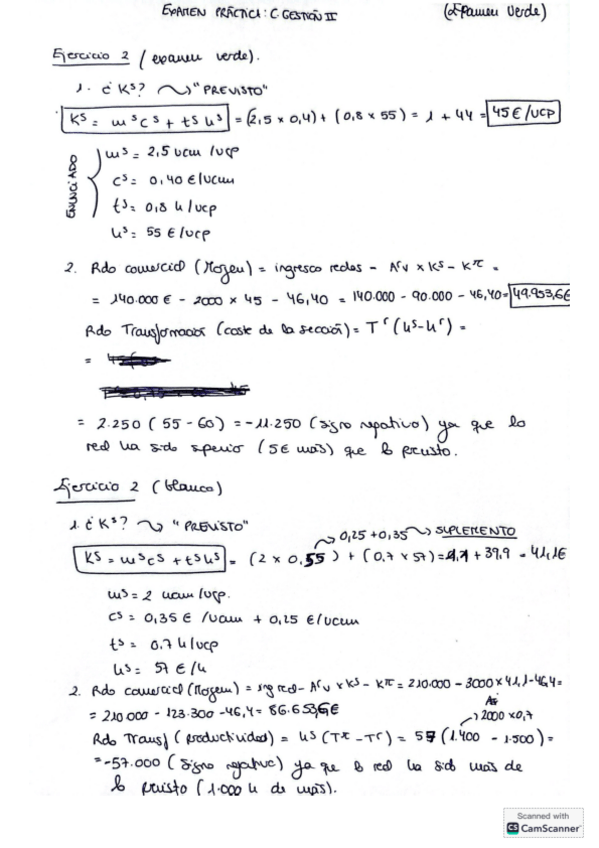 EXAMEN PRÁCTICA: C. GESTIÓN II (Examen Verde)
Ejercicio 2 / (examen verde).
1. ¿ Kˢ? → "PREVISTO"
Kˢ = mˢcˢ + tˢuˢ = (2,5 x 0,4) + (0,8 x 55) = 1 + 44 = 45 €/UCP
ENUNCIADO
mˢ = 2,5 ucm /ucp
cˢ = 0,40 €/ucum
tˢ = 0,8 h/ucp
uˢ = 55 €/ucp
2. Rdo comercial (Margen) = ingresos reales - Aʳv x Kˢ - Kᵖᶜ =
= 140.000 € - 2000 x 45 - 46,40 = 140.000 - 90.000 - 46,40 = 49.953,6€
Rdo Transformación (coste de la sección) = Tʳ (uˢ - uʳ) =
=
= 2.250 ( 55 - 60) = -11.250 (signo negativo) ya que lo
real ha sido superior (5€ más) que lo previsto.
Ejercicio 2 (blanco)
1. ¿ Kˢ? → "PREVISTO"
0,25 + 0,35 → SUPLEMENTO
Kˢ = mˢcˢ + tˢuˢ = (2 x 0,55) + (0,7 x 57) = 1,1 + 39,9 = 41,1€
mˢ = 2 ucum /ucp.
cˢ = 0,35 € /ucum + 0,25 €/ucum
tˢ = 0,7 h/ucp
uˢ = 57 €/h
2. Rdo comercial (Margen) = ing real - Aʳv x Kˢ - Kᵖᶜ = 210.000 - 3000 x 41,1 - 46,4 =
= 210.000 - 123.300 - 46,4 = 86.653,6€
2000 x 0,7
Rdo Transf (productividad) = uˢ (Tᵖᶜ - Tʳ) = 57 (1.400 - 1.500) =
= -57.000 (signo negativo) ya que lo real ha sido más de
lo previsto (1.000 h de más).
Scanned with
CS CamScanner